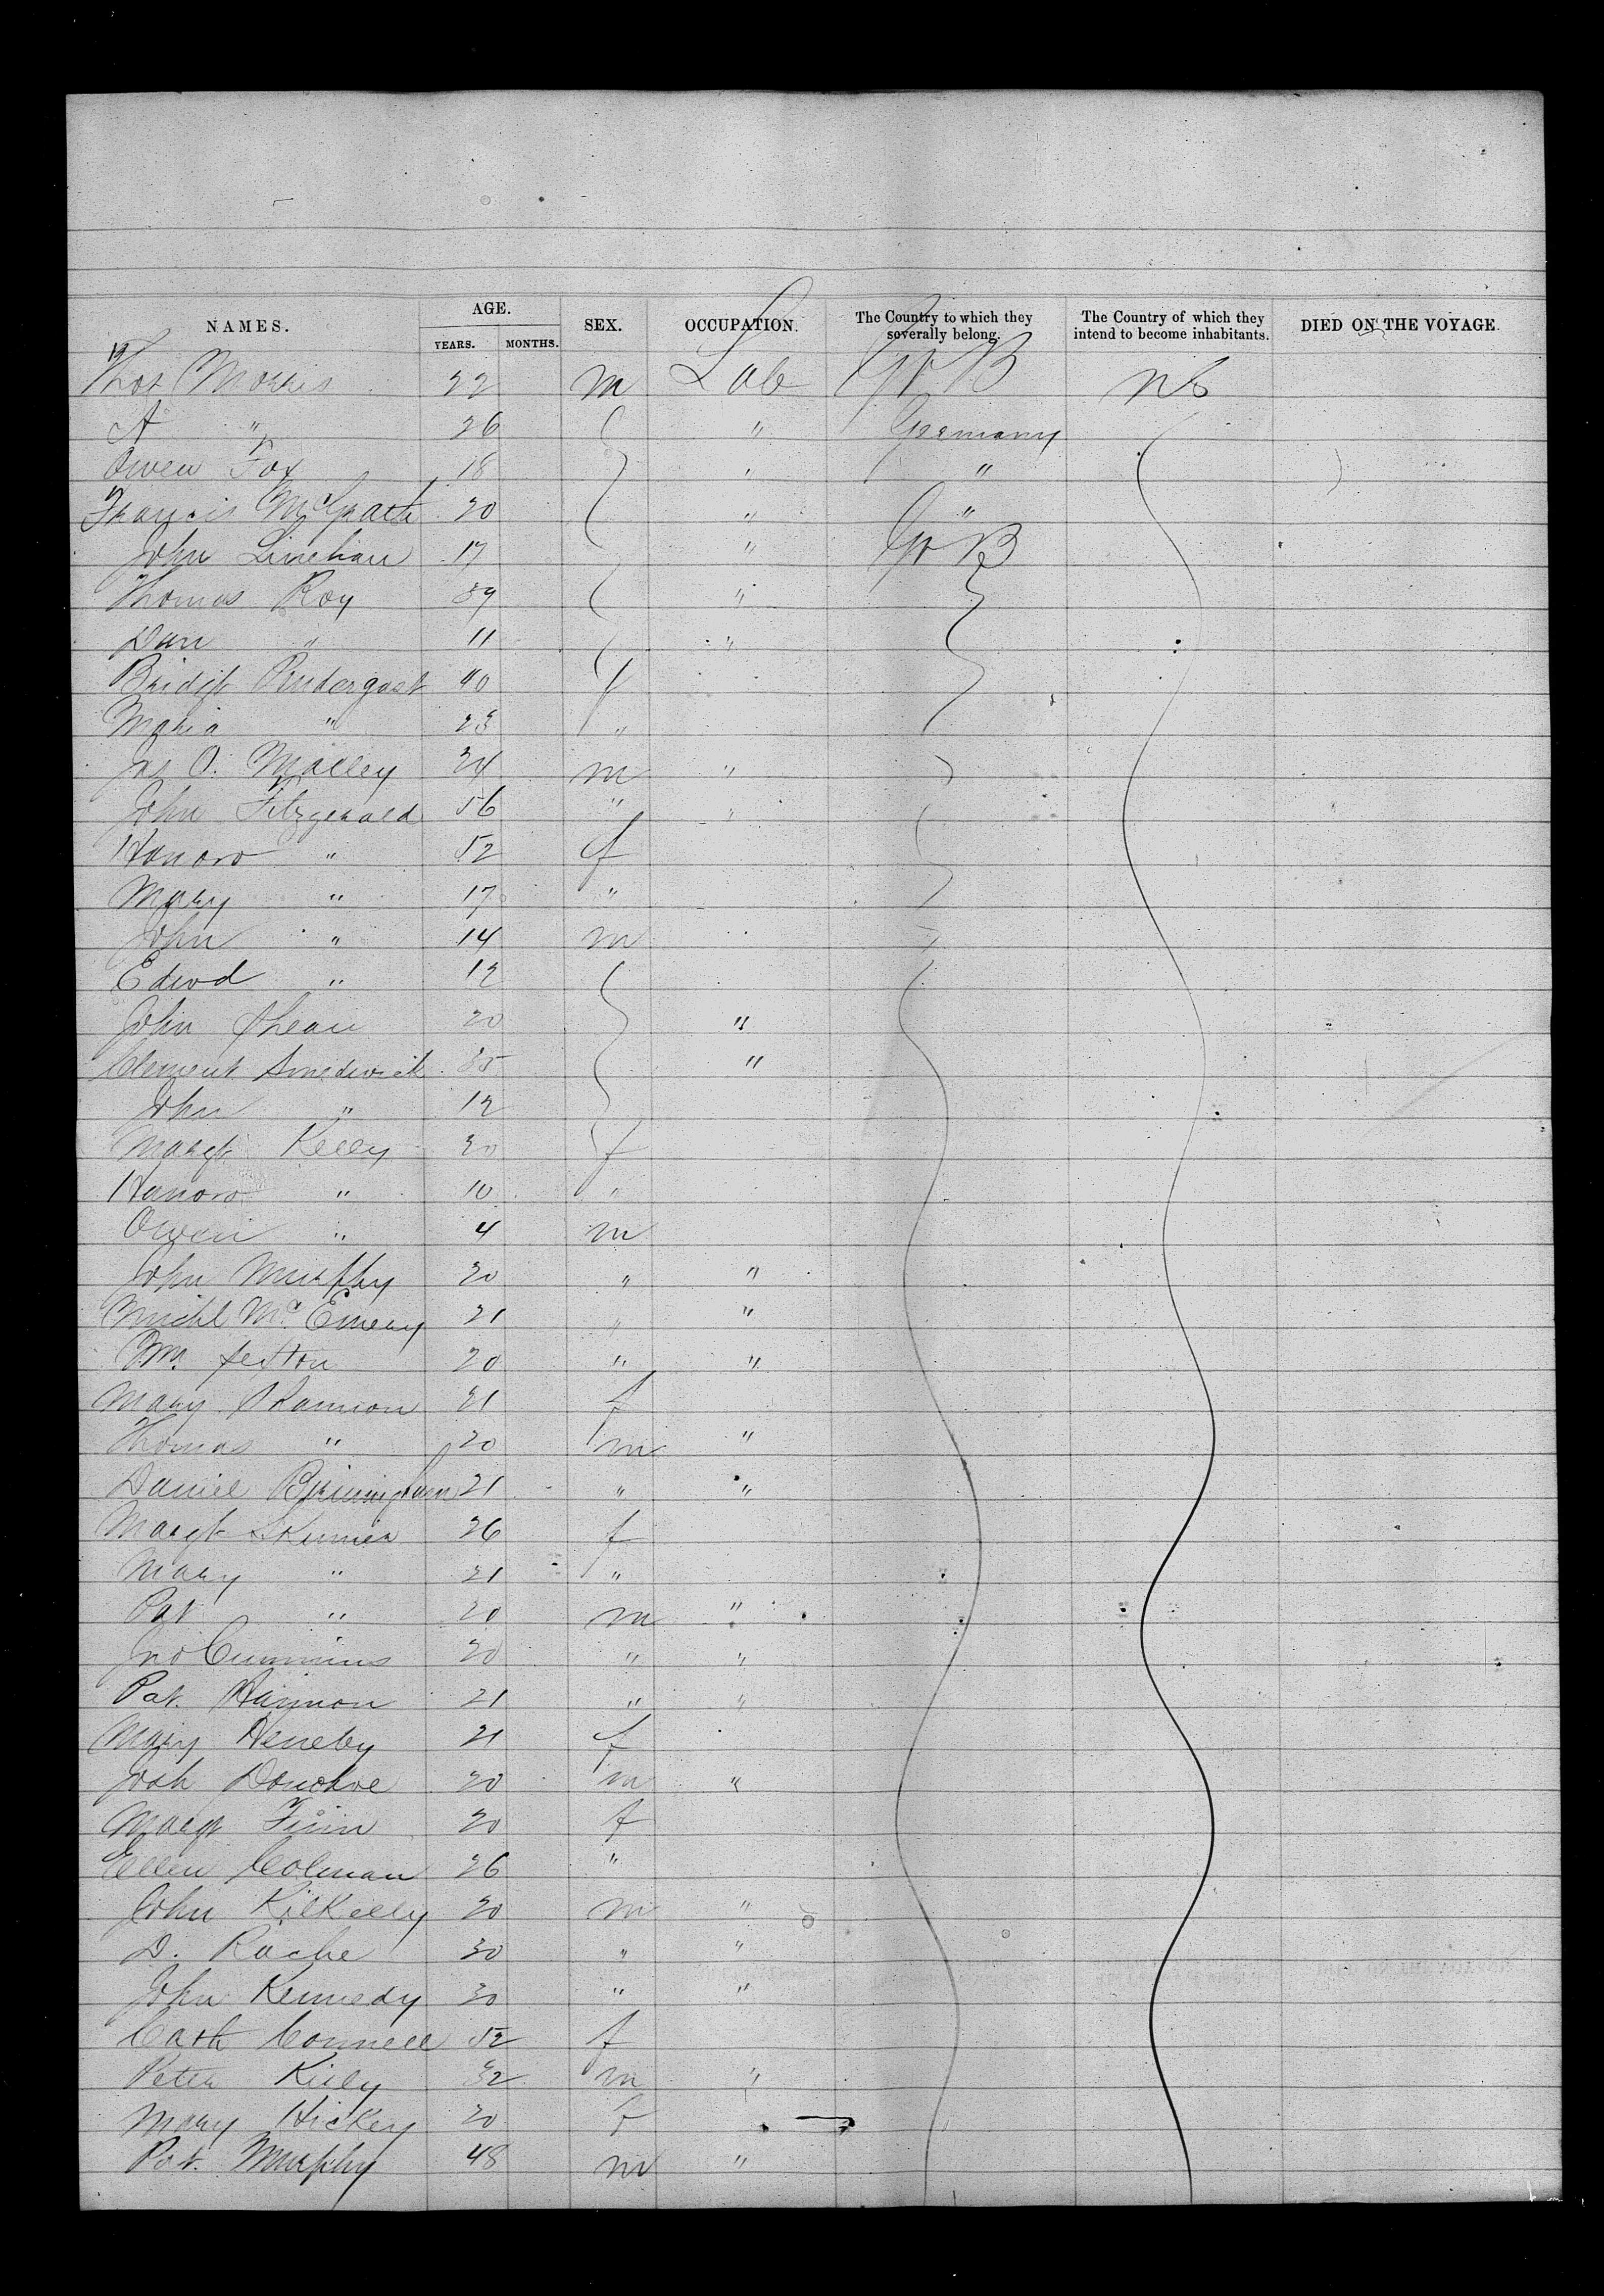 NAMES. AGE. SEX. OCCUPATION. The Country to which they severally belong. The Country of which they intend to become inhabitants. DIED ON THE VOYAGE.
YEARS. MONTHS.
19
Thos Morris 22 m Lab Gr B
A " 26 " Germany
Owen Fox 18 " "
Francis McGrath 20 " "
John Linehan 17 " Gr B
Thomas Roy 39 "
Dan " 11 "
Bridgt Pendergast 40 f
Maria " 23 "
Jas O. Malley 24 m "
John Fitzgerald 56 " "
Honoro " 52 f
Mary " 17 "
John " 14 m
Edwd " 12
John Shean 20 "
Clement Smedwick 35 "
John " 12
Margt Kelly 30 f
Hanoro " 10 "
Owen " 4 m
John Murphy 20 " "
Michl Mc Emery 21 " "
Wm. Sexton 20 " "
Mary Shannon 21 f
Thomas " 20 m "
Daniel Birmingham 21 " "
Margt Skinner 26 f
Mary " 21 "
Pat " 20 m "
Jno Cummins 20 " "
Pat. Hannon 21 " "
Mary Heneby 21 f
Joh Donohoe 20 m "
Margt Finn 20 f
Ellen Colman 26 "
John Kilkelly 20 m "
D. Roche 30 " "
John Kennedy 30 " "
Cath Connell 52 f
Peter Kiely 32 m "
Mary Hickey 20 f
Pat. Murphy 48 m "